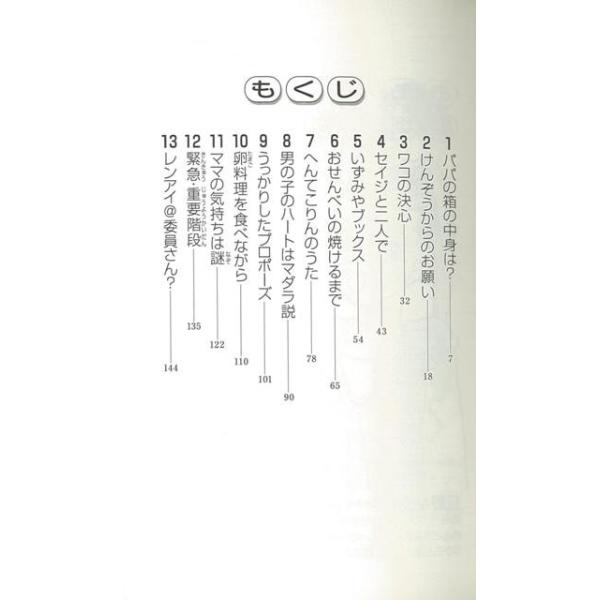 もくじ
1 パパの箱の中身は? 7
2 けんぞうからのお願い 18
3 ワコの決心 32
4 セイジと二人で 43
5 いずみやブックス 54
6 おせんべいの焼けるまで 65
7 へんてこりんのうた 78
8 男の子のハートはマダラ説 90
9 うっかりしたプロポーズ 101
10 卵料理を食べながら 110
11 ママの気持ちは謎 122
12 緊急・重要階段 135
13 レンアイ@委員さん? 144